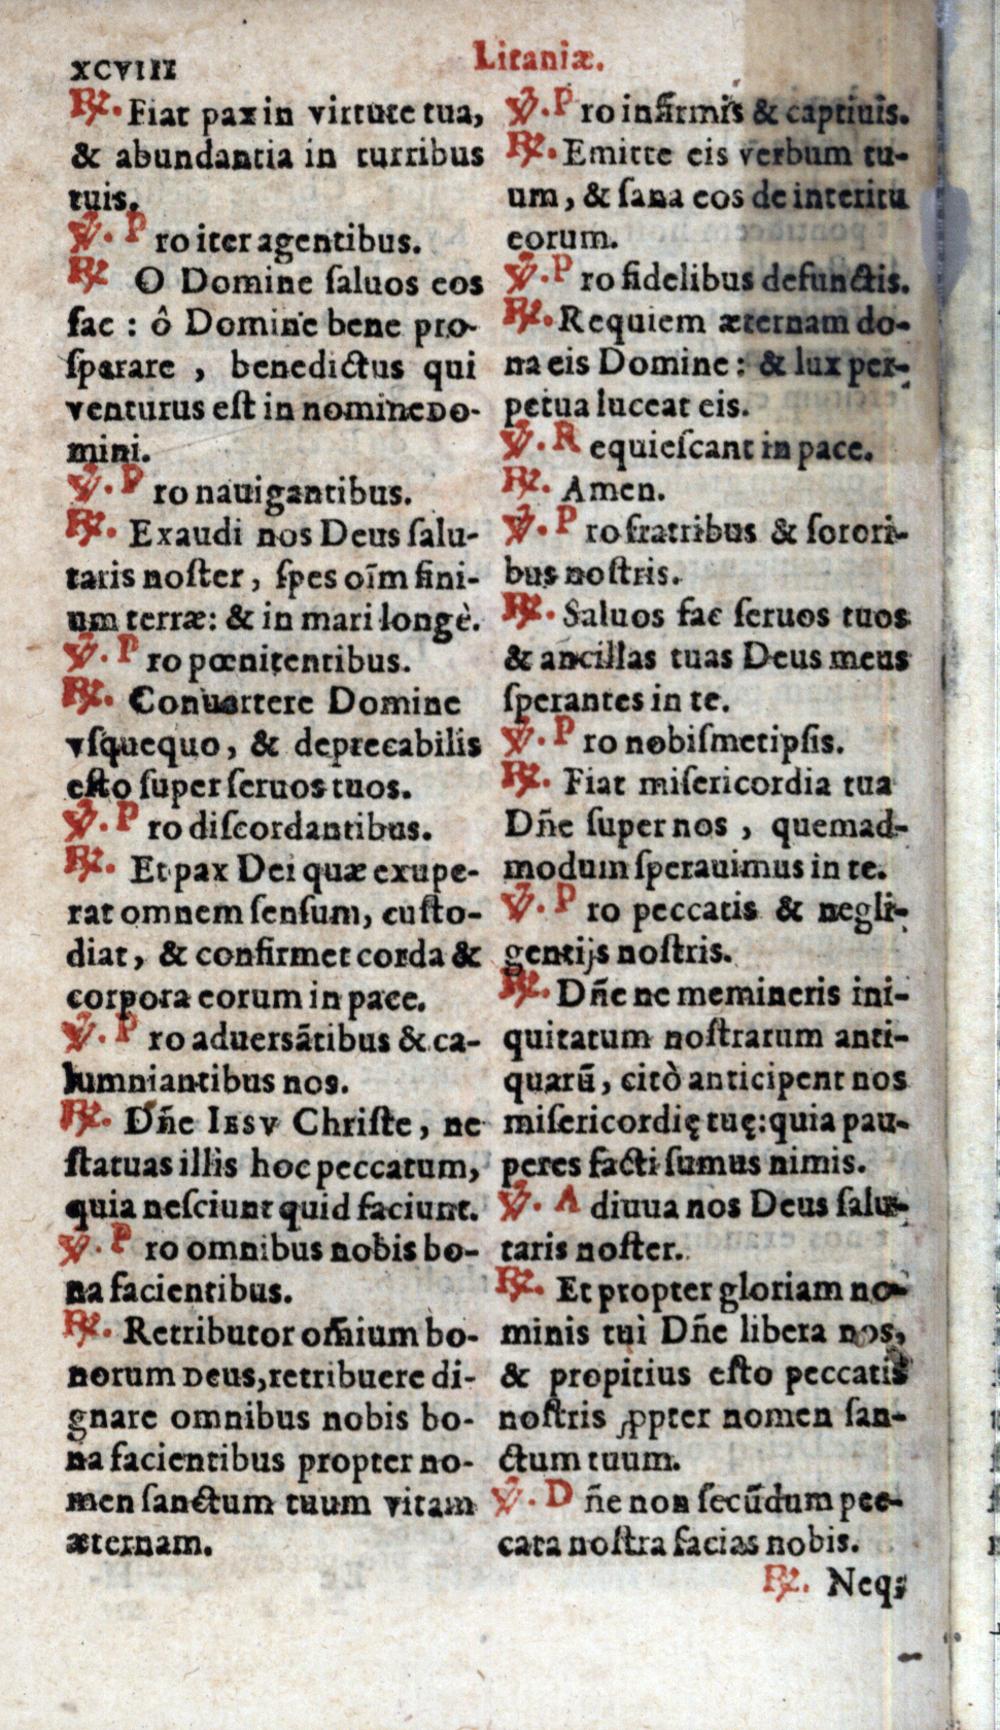 XCVIII
Litaniæ.
℟. Fiat pax in virtute tua,
& abundantia in turribus
tuis.
℣. Pro iter agentibus.
℟ O Domine ſaluos eos
fac : ô Domine bene pro-
ſperare , benedictus qui
venturus eſt in nomine Do-
mini.
℣. Pro nauigantibus.
℟. Exaudi nos Deus ſalu-
taris noſter, ſpes oı̃m fini-
um terræ: & in mari longè.
℣. Pro pœnitentibus.
℟. Conuertere Domine
vſquequo, & deprecabilis
eſto ſuper ſeruos tuos.
℣. Pro diſcordantibus.
℟. Et pax Dei quæ exupe-
rat omnem ſenſum, cuſto-
diat, & confirmet corda &
corpora eorum in pace.
℣. Pro aduersãtibus & ca-
lumniantibus nos.
℟. Dñe IESV Chriſte, ne
ſtatuas illis hoc peccatum,
quia neſciunt quid faciunt.
℣. Pro omnibus nobis bo-
na facientibus.
℟. Retributor om̃ium bo-
norum Deus, retribuere di-
gnare omnibus nobis bo-
na facientibus propter no-
men ſanctum tuum vitam
æternam.
℣. Pro infirmis & captiuis.
℟. Emitte eis verbum tu-
um, & ſana eos de interitu
eorum.
℣. Pro fidelibus defunctis.
℟. Requiem æternam do-
na eis Domine: & lux per-
petua luceat eis.
℣. Requieſcant in pace.
℟. Amen.
℣. Pro fratribus & ſorori-
bus noſtris.
℟. Saluos fac ſeruos tuos
& ancillas tuas Deus meus
ſperantes in te.
℣. Pro nobiſmetipſis.
℟. Fiat miſericordia tua
Dñe ſuper nos , quemad-
modum ſperauimus in te.
℣. Pro peccatis & negli-
gentijs noſtris.
℟. Dñe ne memineris ini-
quitatum noſtrarum anti-
quarũ, citò anticipent nos
miſericordię tuę: quia pau-
peres facti ſumus nimis.
℣. Adiuua nos Deus ſalu-
taris noſter.
℟. Et propter gloriam no-
minis tui Dñe libera nos,
& propitius eſto peccatis
noſtris ꝓpter nomen ſan-
ctum tuum.
℣. Dñe non ſecũdum pec-
cata noſtra facias nobis.
℟. Neq;